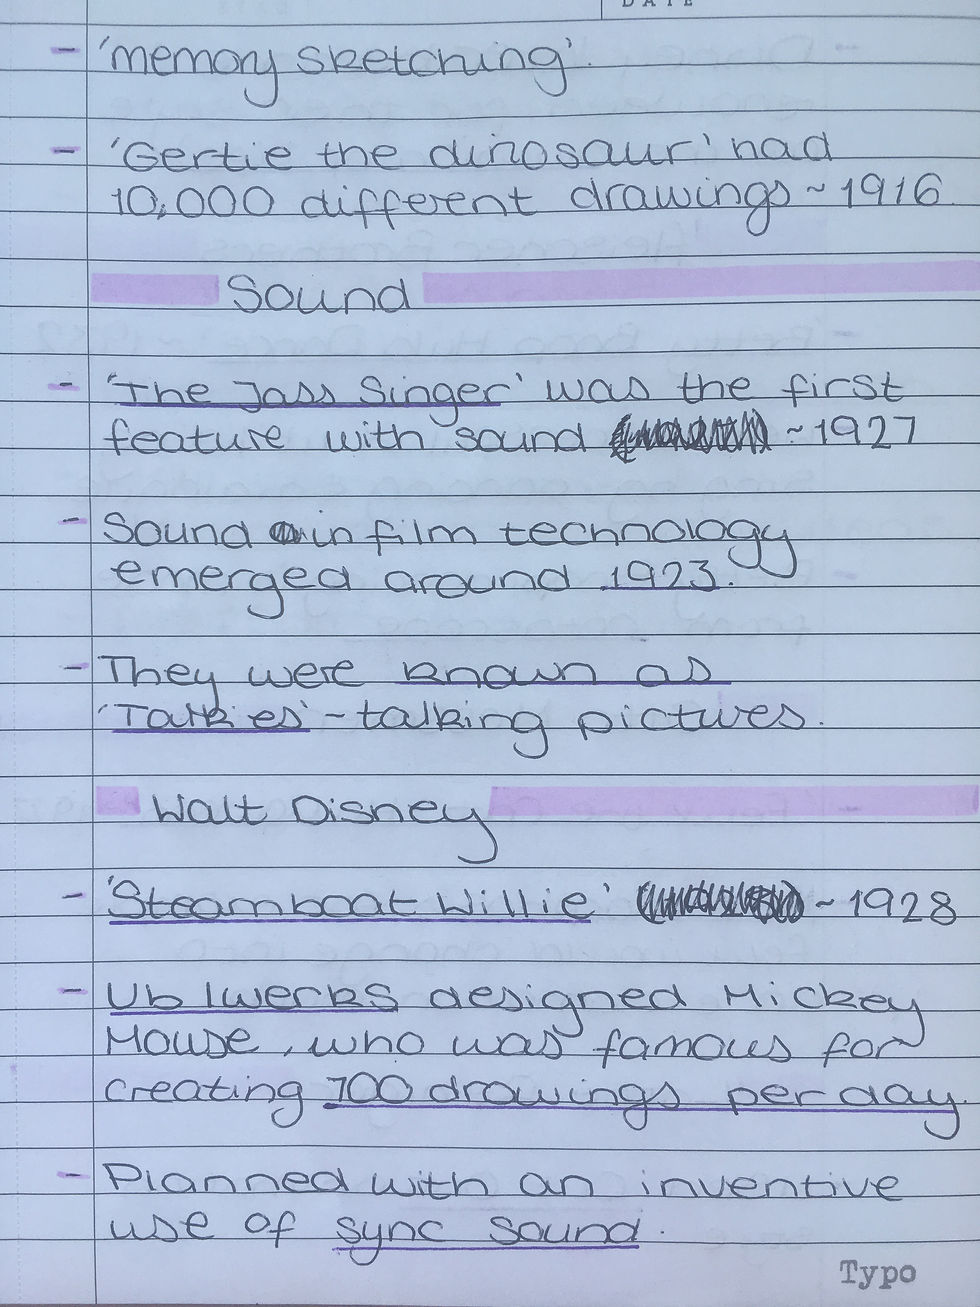 DATE
- 'memory sketching'.
- 'Gertie the dinosaur' had
10,000 different drawings ~ 1916.
Sound
- 'The Jass Singer' was the first
feature with sound ~ 1927
- Sound in film technology
emerged around 1923.
- They were known as
'Talkies' - talking pictures.
Walt Disney
- 'Steamboat Willie' ~ 1928
- Ub Iwerks designed Mickey
Mouse, who was famous for
creating 700 drawings per day.
- Planned with an inventive
use of sync sound.
Typo